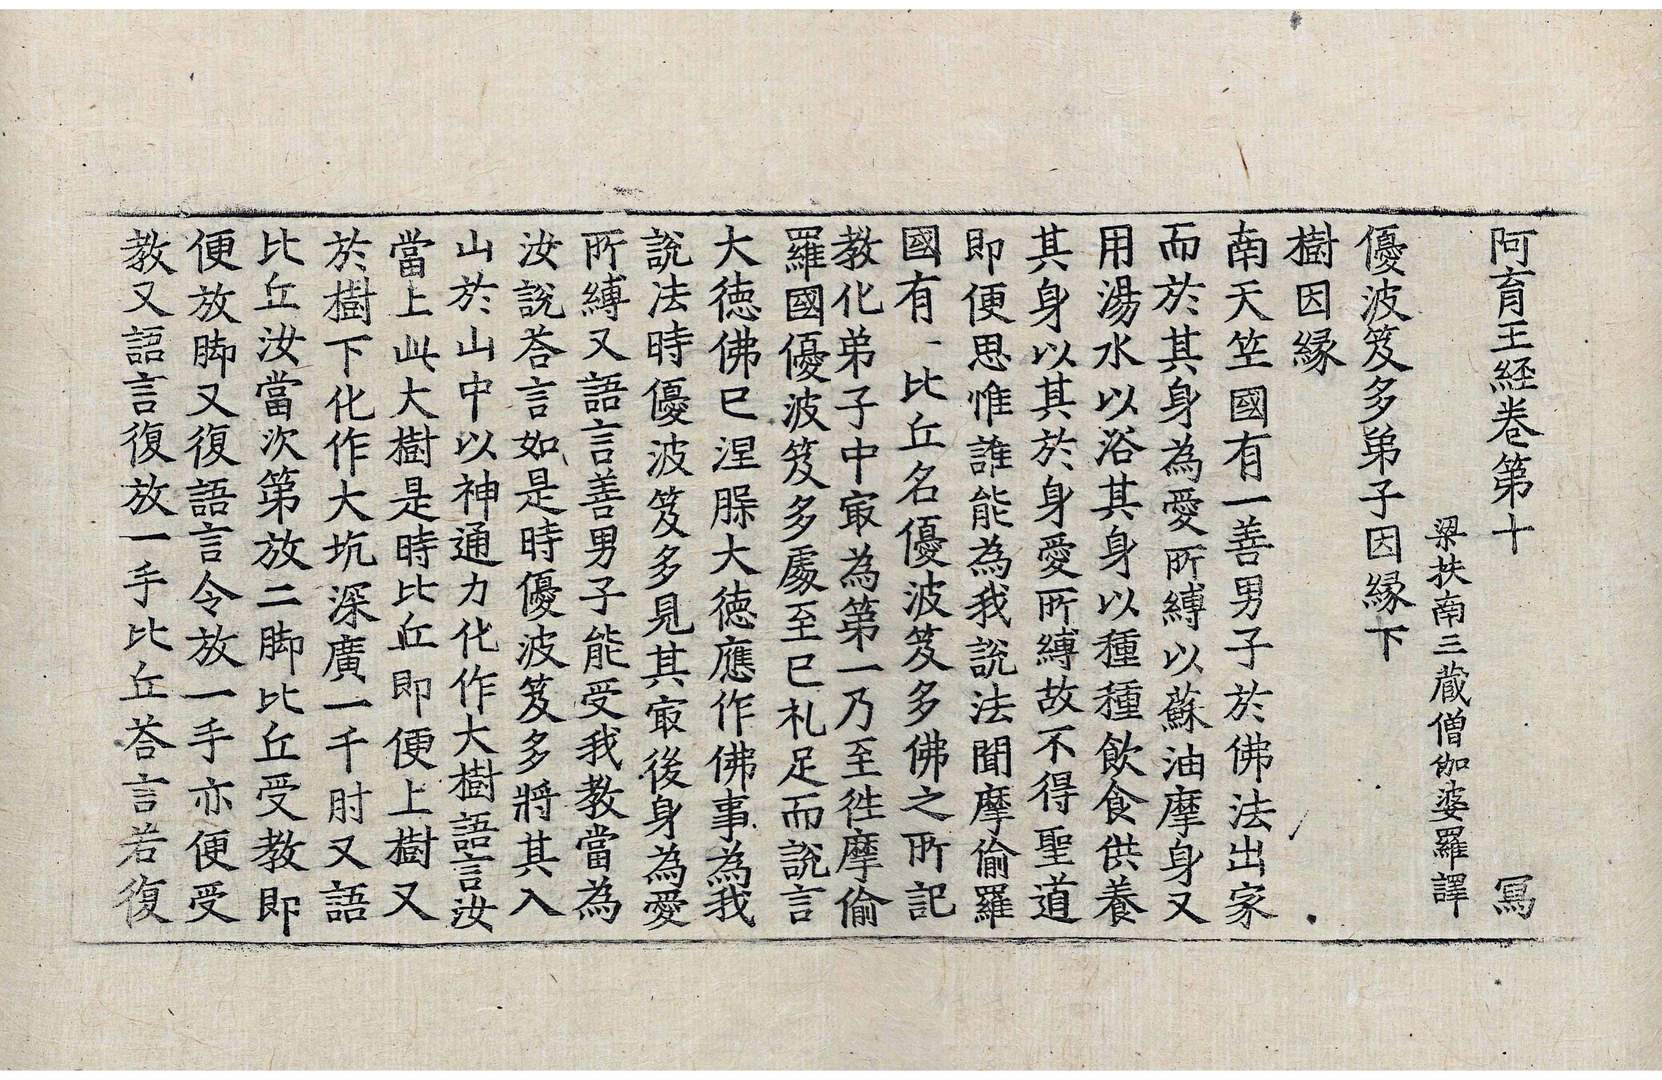 阿育王経巻第十 冩
梁扶南三藏僧伽婆羅譯
優波笈多弟子因縁下
樹因縁
南天笁國有一善男子於佛法出家
而於其身為愛所縛以蘇油摩身又
用湯水以浴其身以種種飲食供養
其身以其於身愛所縛故不得聖道
即便思惟誰能為我說法聞摩偷羅
國有一比丘名優波笈多佛之所記
教化弟子中㝡為第一乃至徃摩偷
羅國優波笈多䖏至已礼足而說言
大徳佛已涅䏶大徳應作佛事為我
說法時優波笈多見其㝡後身為愛
所縛又語言善男子能受我教當為
汝說荅言如是時優波笈多將其入
山於山中以神通力化作大樹語言汝
當上此大樹是時比丘即便上樹又
於樹下化作大坑深廣一千肘又語
比丘汝當次第放二脚比丘受教即
便放脚又復語言令放一手亦便受
教又語言復放一手比丘荅言若復